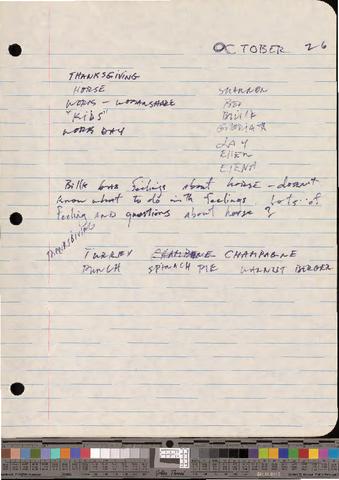 OCTOBER 26
THANKSGIVING
HORSE SHARRON
WORK - WOMANSHARE
"KIDS" BILLIE
WORK DAY
ELLEN
Billie has feelings about horse - doesn't
know what to do with feelings. Lots of
feeling and questions about horse?
THANKSGIVING
TURKEY CHAMPAGNE
PUNCH SPINACH PIE WALNUT BURGER